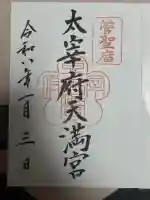 菅聖庿
太宰府天満宮
令和八年一月三日